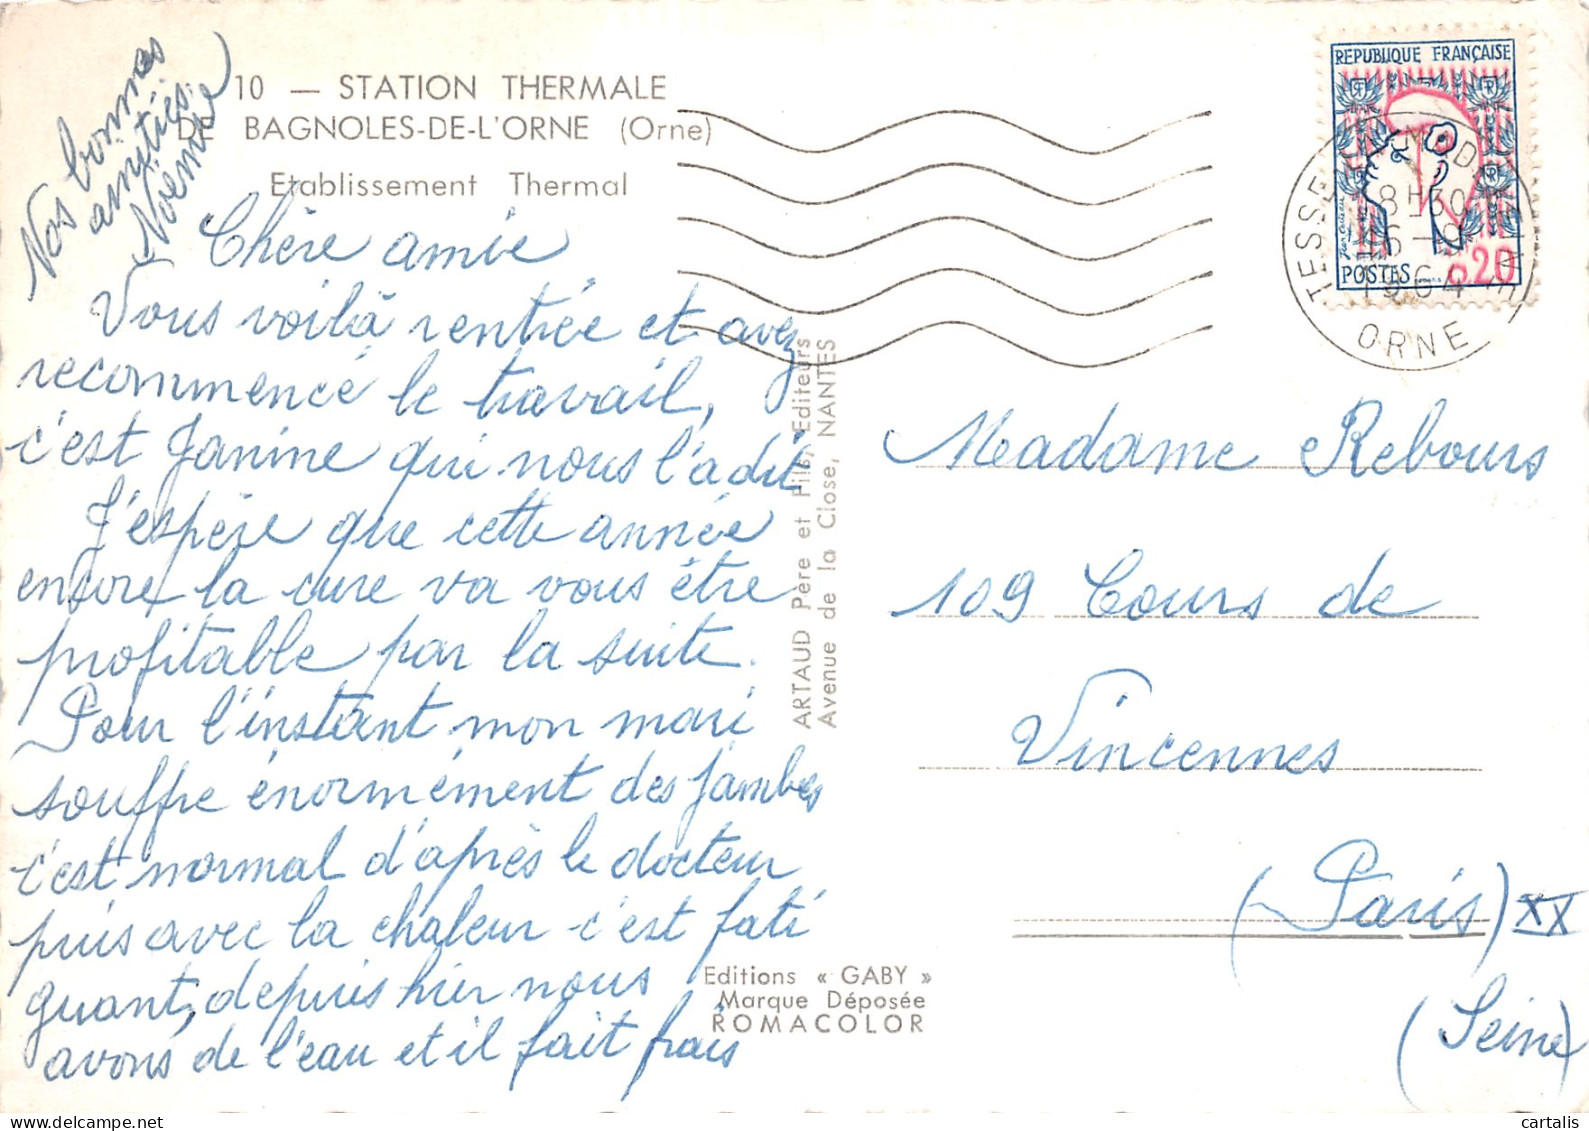 10 — STATION THERMALE
DE BAGNOLES-DE-L'ORNE (Orne)
Etablissement Thermal
Nos bonnes
amitiés.
Noémie
Chère amie
Vous voilà rentrée et avez
recommencé le travail,
c'est Janine qui nous l'a dit
J'espère que cette année
encore la cure va vous être
profitable par la suite.
Pour l'instant mon mari
souffre énormément des jambes
c'est normal d'après le docteur
puis avec la chaleur c'est fati
guant, depuis hier nous
avons de l'eau et il fait frais
ARTAUD Père et Fils, Editeurs
Avenue de la Close, NANTES
Editions « GABY »
Marque Déposée
ROMACOLOR
REPUBLIQUE FRANÇAISE
POSTES 0,20
TESSE
8H30
16-9
1964
ORNE
Madame Rebours
109 Cours de
Vincennes
(Paris) XX
(Seine)
cartalis.com